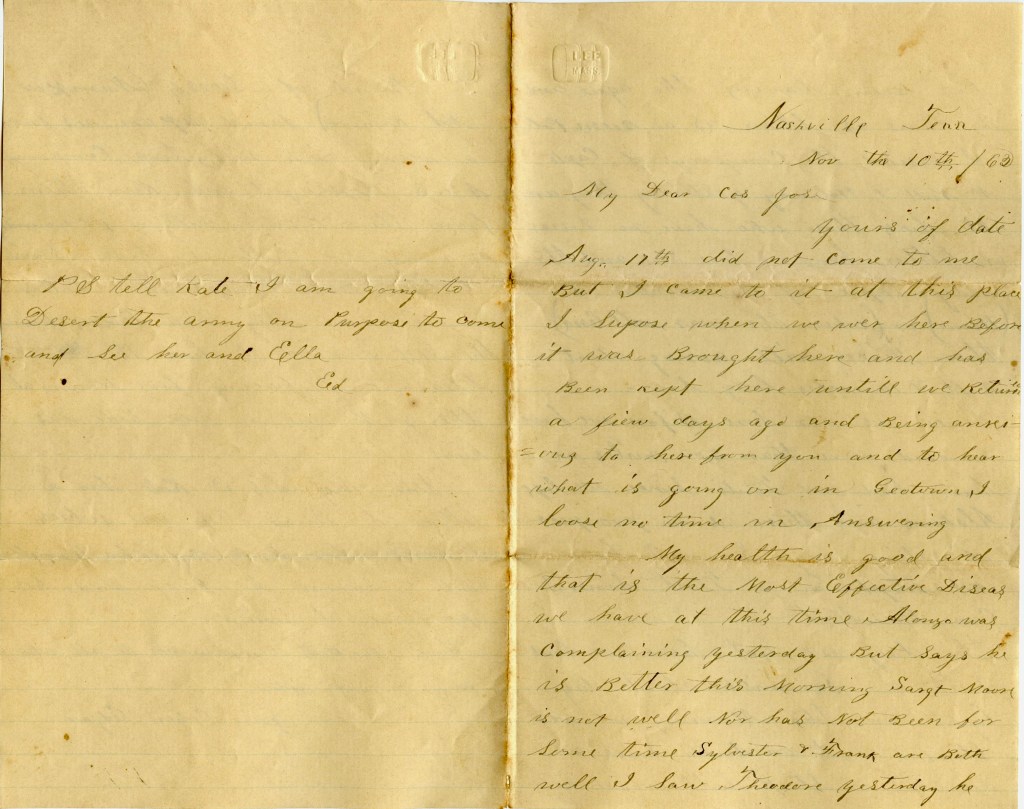 P S tell Kate I am going to
Desert the army on Purpose to come
and See her and Eella
Ed
Nashville Tenn
Nov the 10th / 62
My Dear Cos Jose
yours of date
Aug. 17th did not come to me
But I came to it at this place
I Supose when we wer here Before
it was Brought here and has
Been kept here untill we Return
a fiew days ago and Being anxi-
=ous to here from you and to hear
what is going on in Geotown, I
loose no time in Answering
My health is good and
that is the Most Effective Diseas
we have at this time. Alonzo was
Complaining yesterday But Says he
is Better this Morning Sargt Moore
is not well Nor has Not Been for
Some time Sylvester & Frank are Both
well I Saw Theodore yesterday he